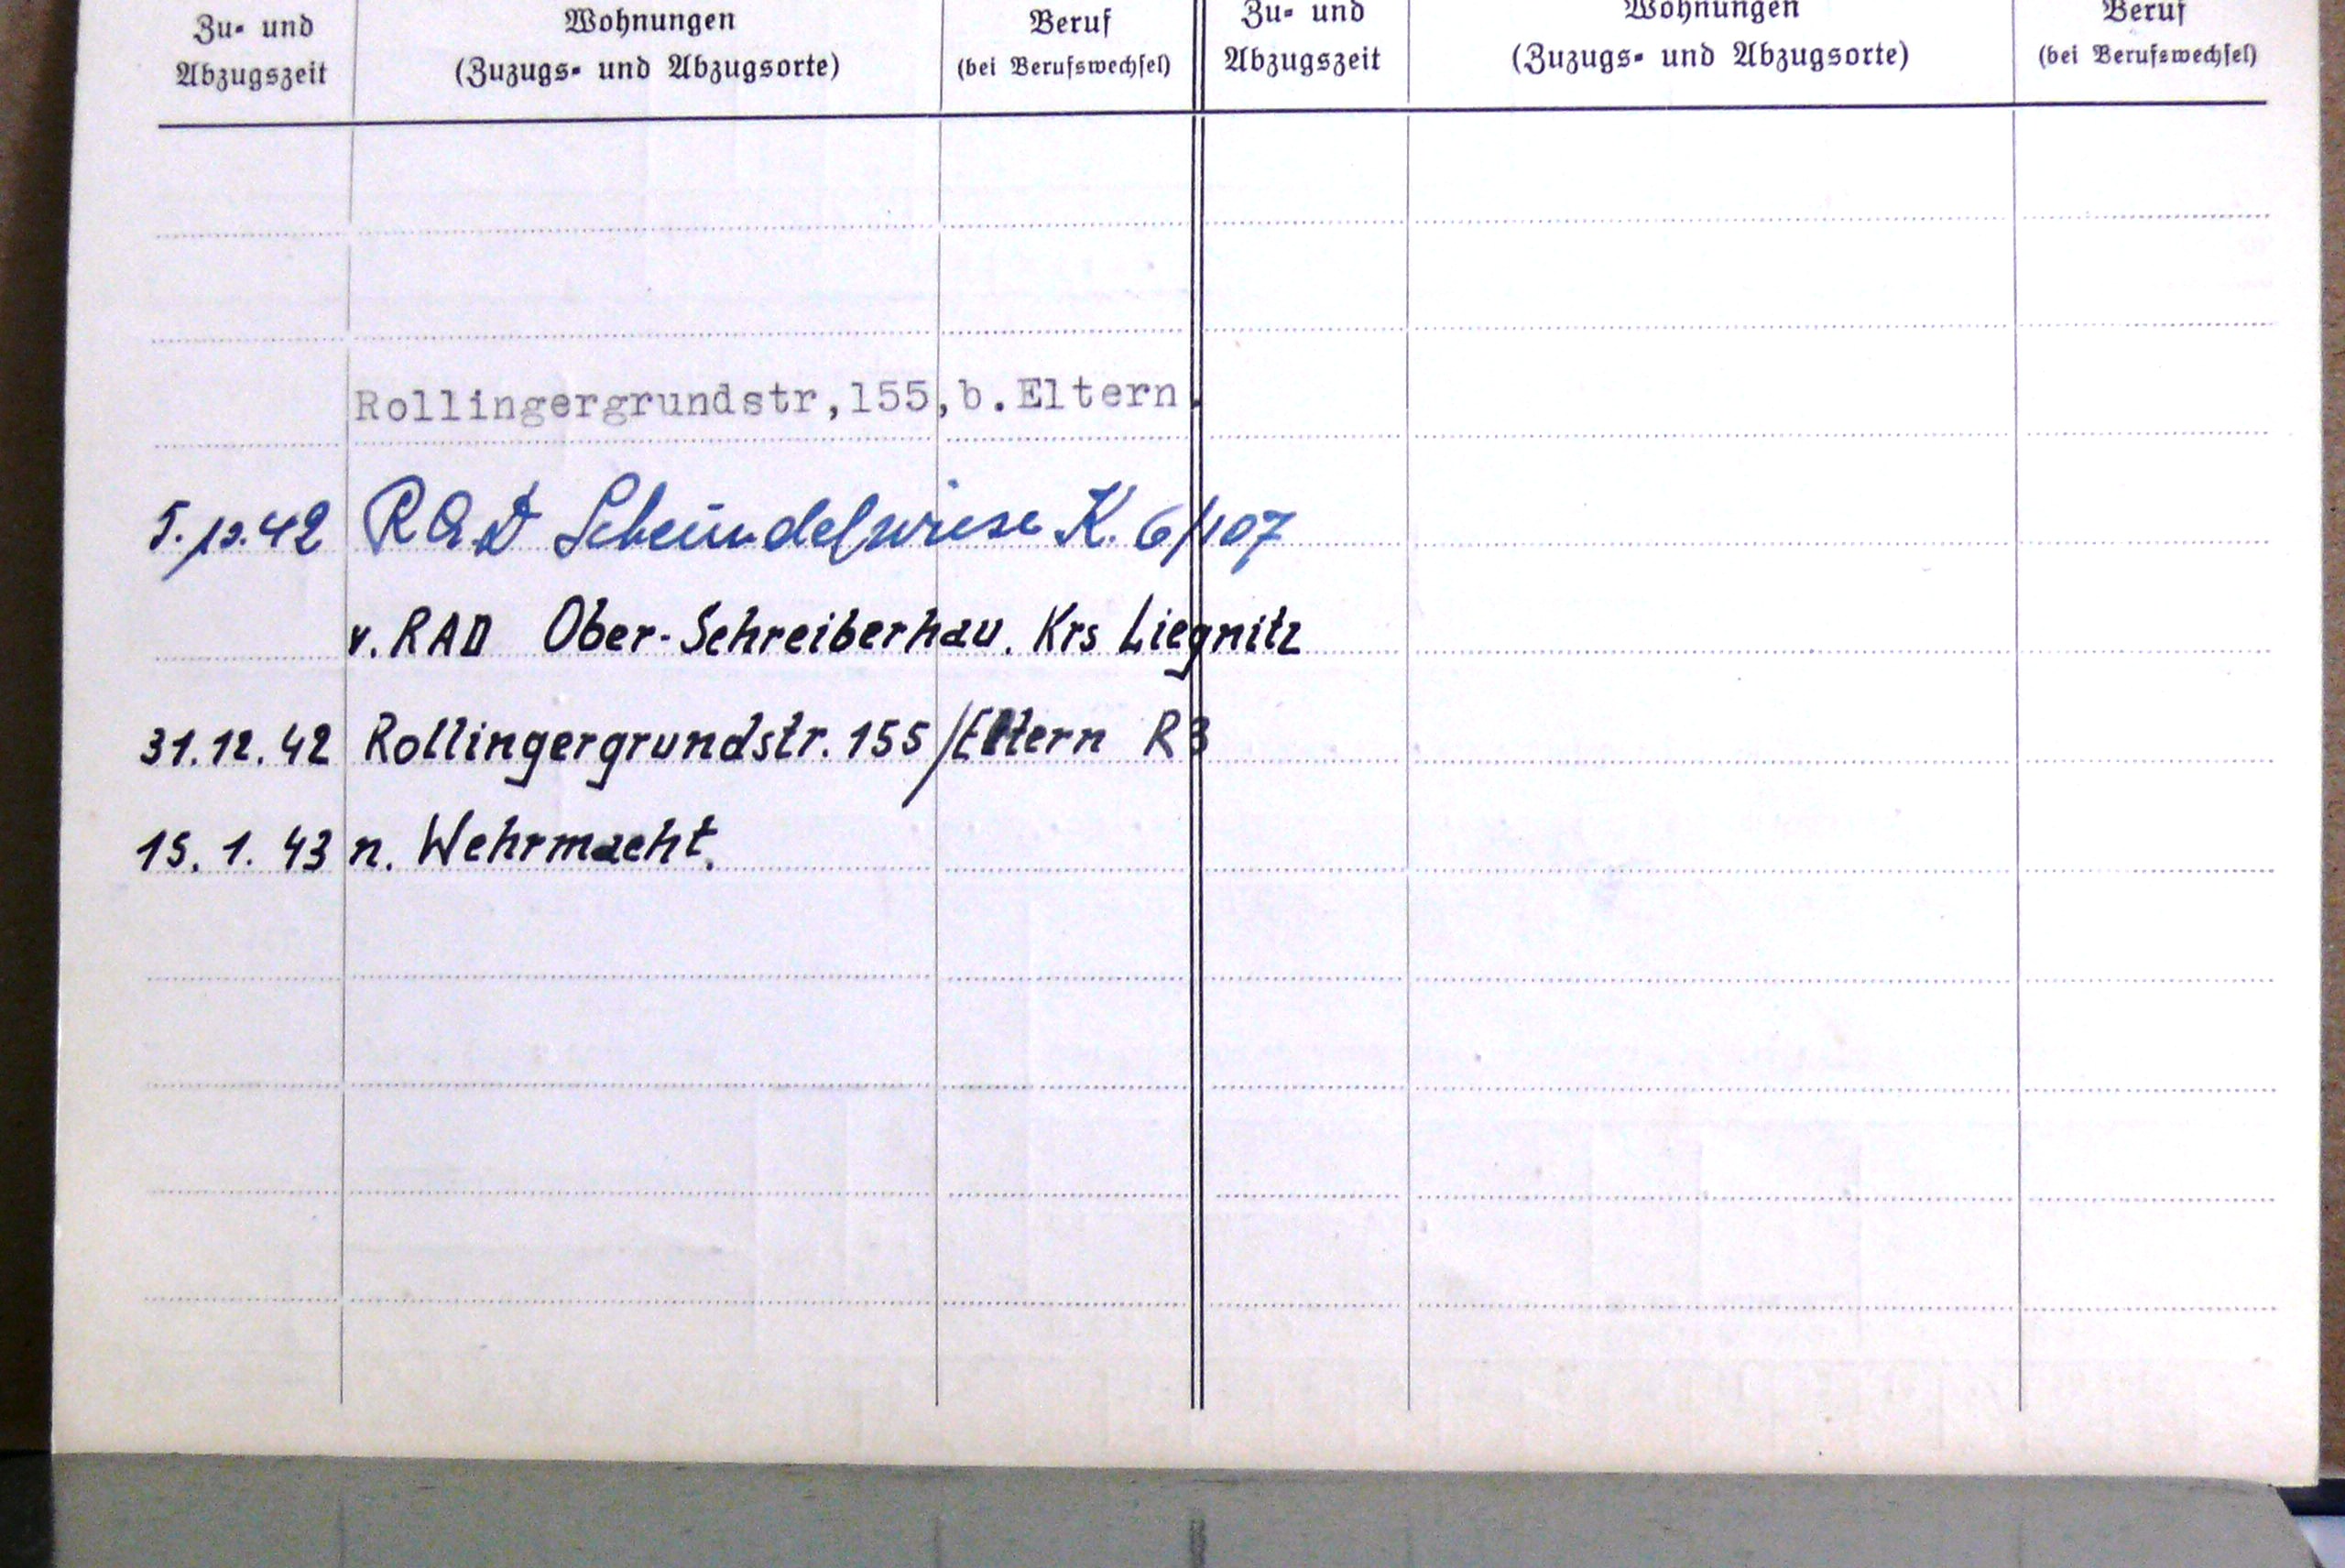 Zu- und Abzugszeit
Wohnungen (Zuzugs- und Abzugsorte)
Beruf (bei Berufswechsel)
Zu- und Abzugszeit
Wohnungen (Zuzugs- und Abzugsorte)
Beruf (bei Berufswechsel)
Rollingergrundstr,155,b.Eltern.
42 RAD K. 6/107
v. RAD Ober-Schreiberhau. Krs Liegnitz
31.12.42 Rollingergrundstr. 155/Eltern R3
15. 1. 43 n. Wehrmacht.